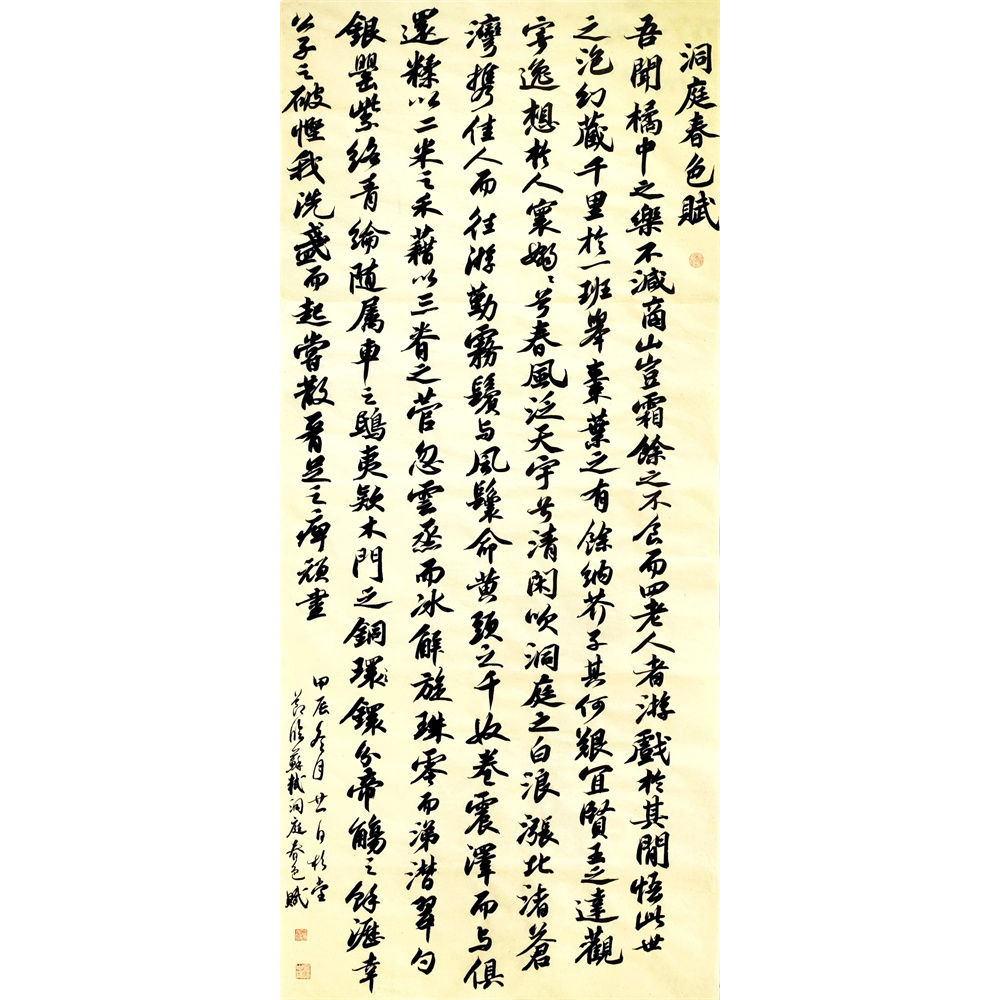 洞庭春色賦
吾聞橘中之樂不減商山豈霜餘之不食而四老人者游戲於其間悟此世
之泡幻藏千里於一班舉棗葉之有餘納芥子其何艱宜賢王之達觀
寄逸想於人寰嫋嫋兮春風泛天宇兮清閑吹洞庭之白浪漲北渚蒼
灣攜佳人而往游勤霧鬢与風鬟命黃頭之千奴卷震澤而与俱
還糅以二米之禾藉以三脊之菅忽雲烝而冰解旋珠零而涕潸翠勺
銀罌紫絡青綸随属車之鴟夷款木門之銅環鐶分帝觴之餘瀝幸
公子之破慳我洗盞而起嘗散腰足之痺頑盡
甲辰冬月廿一日於堂
節臨蘇軾洞庭春色賦